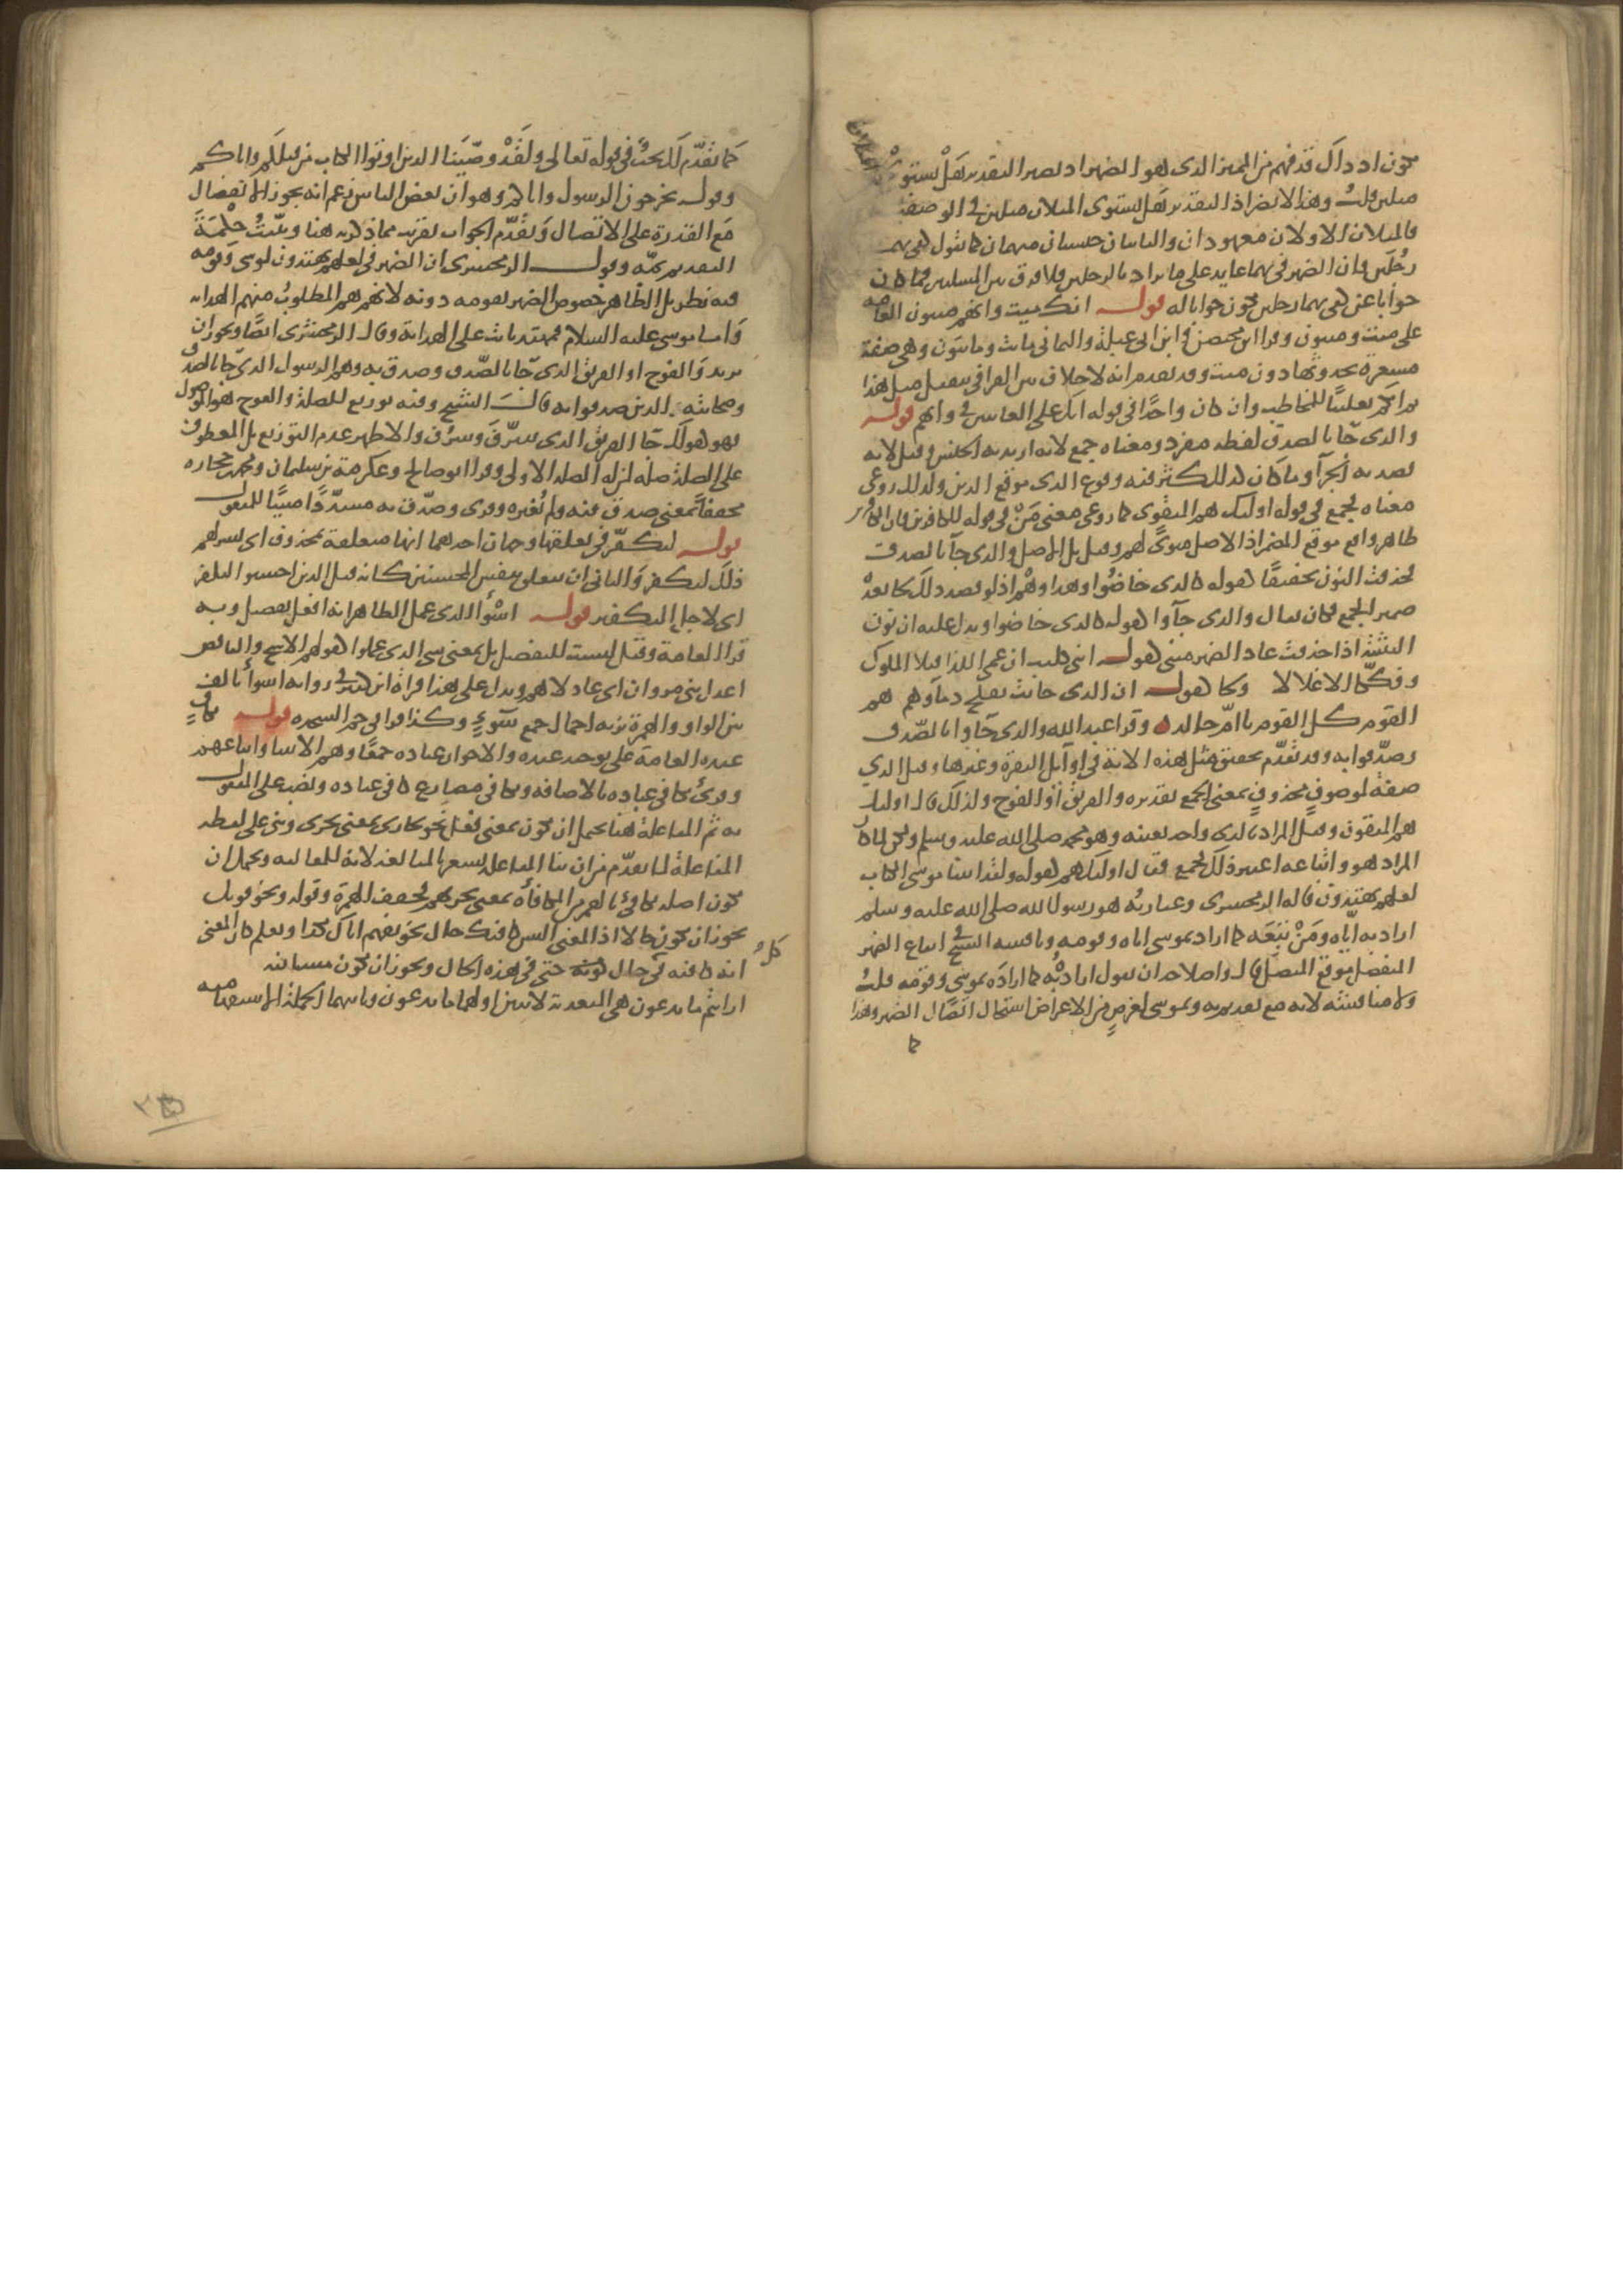 يكون اذ ذاك قد فهم من المميز الذي هو الضمير اذ يصير التقدير هل يستوي المثلان
مثلين قلت وهذا لا يضر اذ التقدير هل يستوي المثلان مثلين في الوصفية
فالمثلان الاولان معهودان والثانيان جنسان مبهمان كما تقول كفى بهما
رجلين فان الضمير في بهما عايد على ما يراد بالرجلين فلا فرق بين المسلتين فما كان
جوابا عن كفى بهما رجلين يكون جوابا له قوله انك ميت وانهم ميتون العامة
على ميت وميتون وقرا ابن محيصن وابن ابي عبلة واليماني مايت ومايتون وهي صفة
مشعرة بحدوثها دون ميت وقد تقدم انه لا خلاف بين القرا في تثقيل مثل هذا
ثم انكم تغليبا للمخاطب وان كان واحدا في قوله انك على الغايبين في وانهم قوله
والذي جا بالصدق لفظه مفرد ومعناه جمع لانه اريد به الجنس وقيل لانه
قصد به الجزآ وما كان كذلك كثر فيه وقوع الذي موقع الذين ولذلك روعي
معناه فجمع في قوله اوليك هم المتقون كما روعي معنى من في قوله للكافرين فان الكافر
ظاهر واقع موقع المضمر اذ الاصل مثوى لهم وقيل بل الاصل والذين جآ بالصدق
فحذفت النون تخفيفا كقوله كالذي خاضوا وهذا وهم اذ لو قصد ذلك لجا بعده
ضمير الجمع فكان يقال والذي جآوا كقوله كالذي خاضوا ويدل عليه ان نون
التثنية اذا حذفت عاد الضمير مثنى كقوله ابني كليب ان عمي اللذا قتلا الملوك
وفككا الاغلالا وكا كقوله ان الذي حانت بفلج دماوهم هم
القوم كل القوم يا ام خالد وقرا عبد الله والذي جآوا بالصدق
وصدقوا به وقد تقدم تحقيق مثل هذه الاية في اوآيل البقرة وغيرها وقيل الذي
صفة لموصوف محذوف بمعنى الجمع تقديره والفريق او الفوج ولذلك قال اوليك
هم المتقون وقيل المراد بالذي واحد بعينه وهو محمد صلى الله عليه وسلم ولكن لما كان
المراد هو واتباعه اعتبر ذلك فجمع فقال اوليك هم كقوله ولقد اتينا موسى الكتاب
لعلهم يهتدون قاله الزمخشري وعبارته هو رسول الله صلى الله عليه وسلم
اراد به اياه ومن تبعه كما اراد بموسى اياه وقومه وناقشه الشيخ في ايقاع الضمير
المنفصل موقع المتصل قال واصلاحه ان يقول اراده به كما اراده بموسى وقومه قلت
ولا مناقشة لانه مع تقديم به وبموسى لغرض من الاغراض استحال اتصال الضمير وهذا
كما
كما تقدم لك بحث في قوله تعالى ولقد وصينا الذين اوتوا الكتاب من قبلكم واياكم
وقوله يخرجون الرسول واياكم وهو ان بعض الناس زعم انه يجوز الانفصال
مع القدرة على الاتصال وتقدم الجواب بقريب مما ذكرته هنا وبينت حكمة
التقديم ثمه وقول الزمخشري ان الضمير في لعلهم يهتدون لموسى وقومه
فيه نظر بل الظاهر خصوص الضمير بقومه دونه لانهم هم المطلوب منهم الهداية
واما موسى عليه السلام فمهتد ثابت على الهداية وقال الزمخشري ايضا ويجوز ان
يريد والفوج او الفريق الذي جآ بالصدق وصدق به وهم الرسول الذي جا بالصدق
وصحابته الذين صدقوا به قال الشيخ وفيه توزيع للصلة والفوج هو الموصول
فهو كقولك جا الفريق الذي شرف وشرف والاظهر عدم التوزيع بل المعطوف
على الصلة صلة لمن له الصلة الاولى وقرا ابو صالح وعكرمة بن سليمان ومحمد بن جحاده
مخففا بمعنى صدق فيه ولم يغيره وقري وصدق به مشددا مبنيا للمفعول
قوله ليكفر في تعلقها وجهان احدهما انها متعلقة بمحذوف اي يسر لهم
ذلك ليكفر والثاني ان يتعلق بنفس المحسنين كانه قيل الذين احسنوا ليكفر
اي لاجل التكفير قوله اسوأ الذي عمل الظاهر انه افعل تفضيل وبه
قرا العامة وقيل ليست للتفضيل بل بمعنى سي الذي عملوا كقولهم الاشج والناقص
اعدلا بني مروان اي عادلاهم ويدل على هذا قراة ابن كثير في رواية اسوآ بالف
بين الواو والهمزة بزنة احمال جمع سوء وكذا قرا في حم السجدة قوله بكاف
عبده العامة على توحيد عبده والاخوان عباده جمعا وهم الانبيا واتباعهم
وقرئ بكافي عباده بالاضافة ويكافي مضارع كافى عباده ونصب على المفعول
به ثم المفاعلة هنا يحتمل ان تكون بمعنى فعل نحو يجازي بمعنى يجزي وبني على لفظه
المفاعلة لما تقدم من ان بنا المفاعلة يشعر بالمبالغة لانه للمغالبه ويحتمل ان
يكون اصله يكافئ بالهمز من المكافأة بمعنى يجزيهم فخفف الهمزة وقوله ويخوفونك
يجوز ان يكون حالا اذ المعنى اليس كافيك حال تخويفهم اياك بكذا ويعلم كان المعنى
انه كافيه في كل حال حتى في هذه الحال ويجوز ان تكون مستانفه
ارايتم ما تدعون هي المتعدية لاثنين اولهما ما تدعون وثانيهما الجملة الاستفهاميه